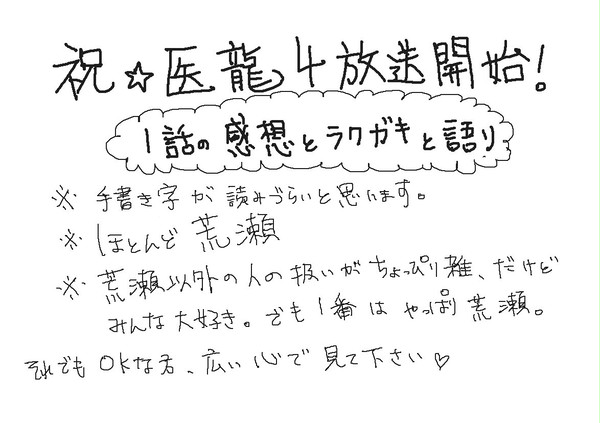 祝☆医龍4放送開始!
1話の感想とラクガキと語り
※ 手書き字が読みづらいと思います。
※ ほとんど荒瀬
※ 荒瀬以外の人の扱いがちょっぴり雑、だけど
みんな大好き。でも1番はやっぱり荒瀬。
それでもOKな方、広い心で見て下さい♡